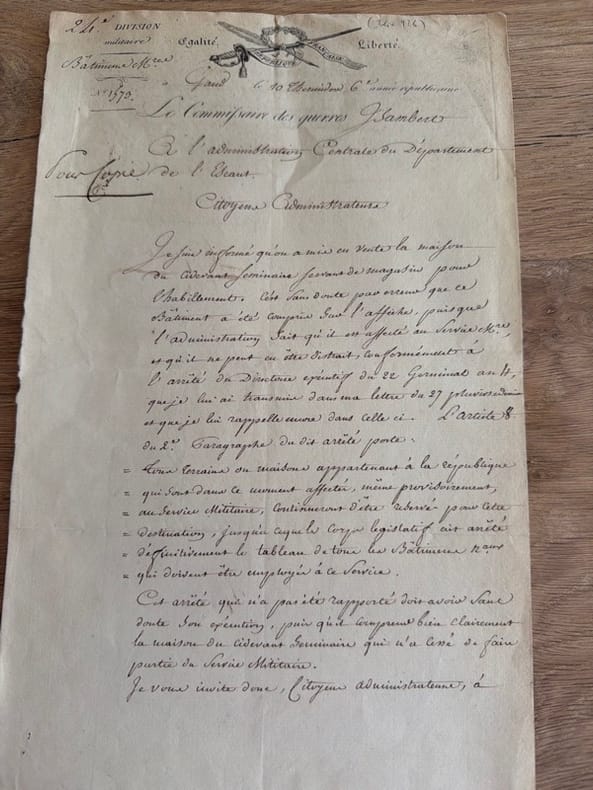 24e DIVISION
militaire
Egalité. Liberté.
RÉPUBLIQUE FRANÇAISE
Bâtimens Mres
Nº 1573.
à Gand le 10 Thermidor 6e année républicaine
Le Commissaire des guerres J Lambert
Pour Copie
A l'administration Centrale du Département
de l'Escaut.
Citoyens Administrateurs
Je suis informé qu'on a mis en vente la maison
du cidevant Seminaire servant de magasin pour
l'habillement. C'est sans doute par erreur que ce
Bâtiment a été compris sur l'affiche, puisque
l'administration sait qu'il est affecté au Service Mre,
et qu'il ne peut en être distrait, conformément à
l'arrêté du Directoire exécutif du 22 Germinal an 4,
que je lui ai transmis dans ma lettre du 27 pluviose
et que je lui rappelle encore dans celle ci. L'article 8
du 2e Paragraphe du dit arrêté porte.
= tous terrains ou maisons appartenant à la république
= qui sont dans ce moment affectés, même provisoirement,
= au Service Militaire, continueront d'être reservés pour cette
= destination, jusqu'à ceque le Corps législatif ait arrêté
= déffinitivement le tableau de tous les Bâtimens naux
= qui doivent être employés à ce Service.
Cet arrêté qui n'a pas été rapporté doit avoir sans
doute son exécution, puis qu'il comprend bien clairement
la maison du cidevant Seminaire qui n'a cessé de faire
partie du Service Militaire.
Je vous invite donc, Citoyens administrateurs, à